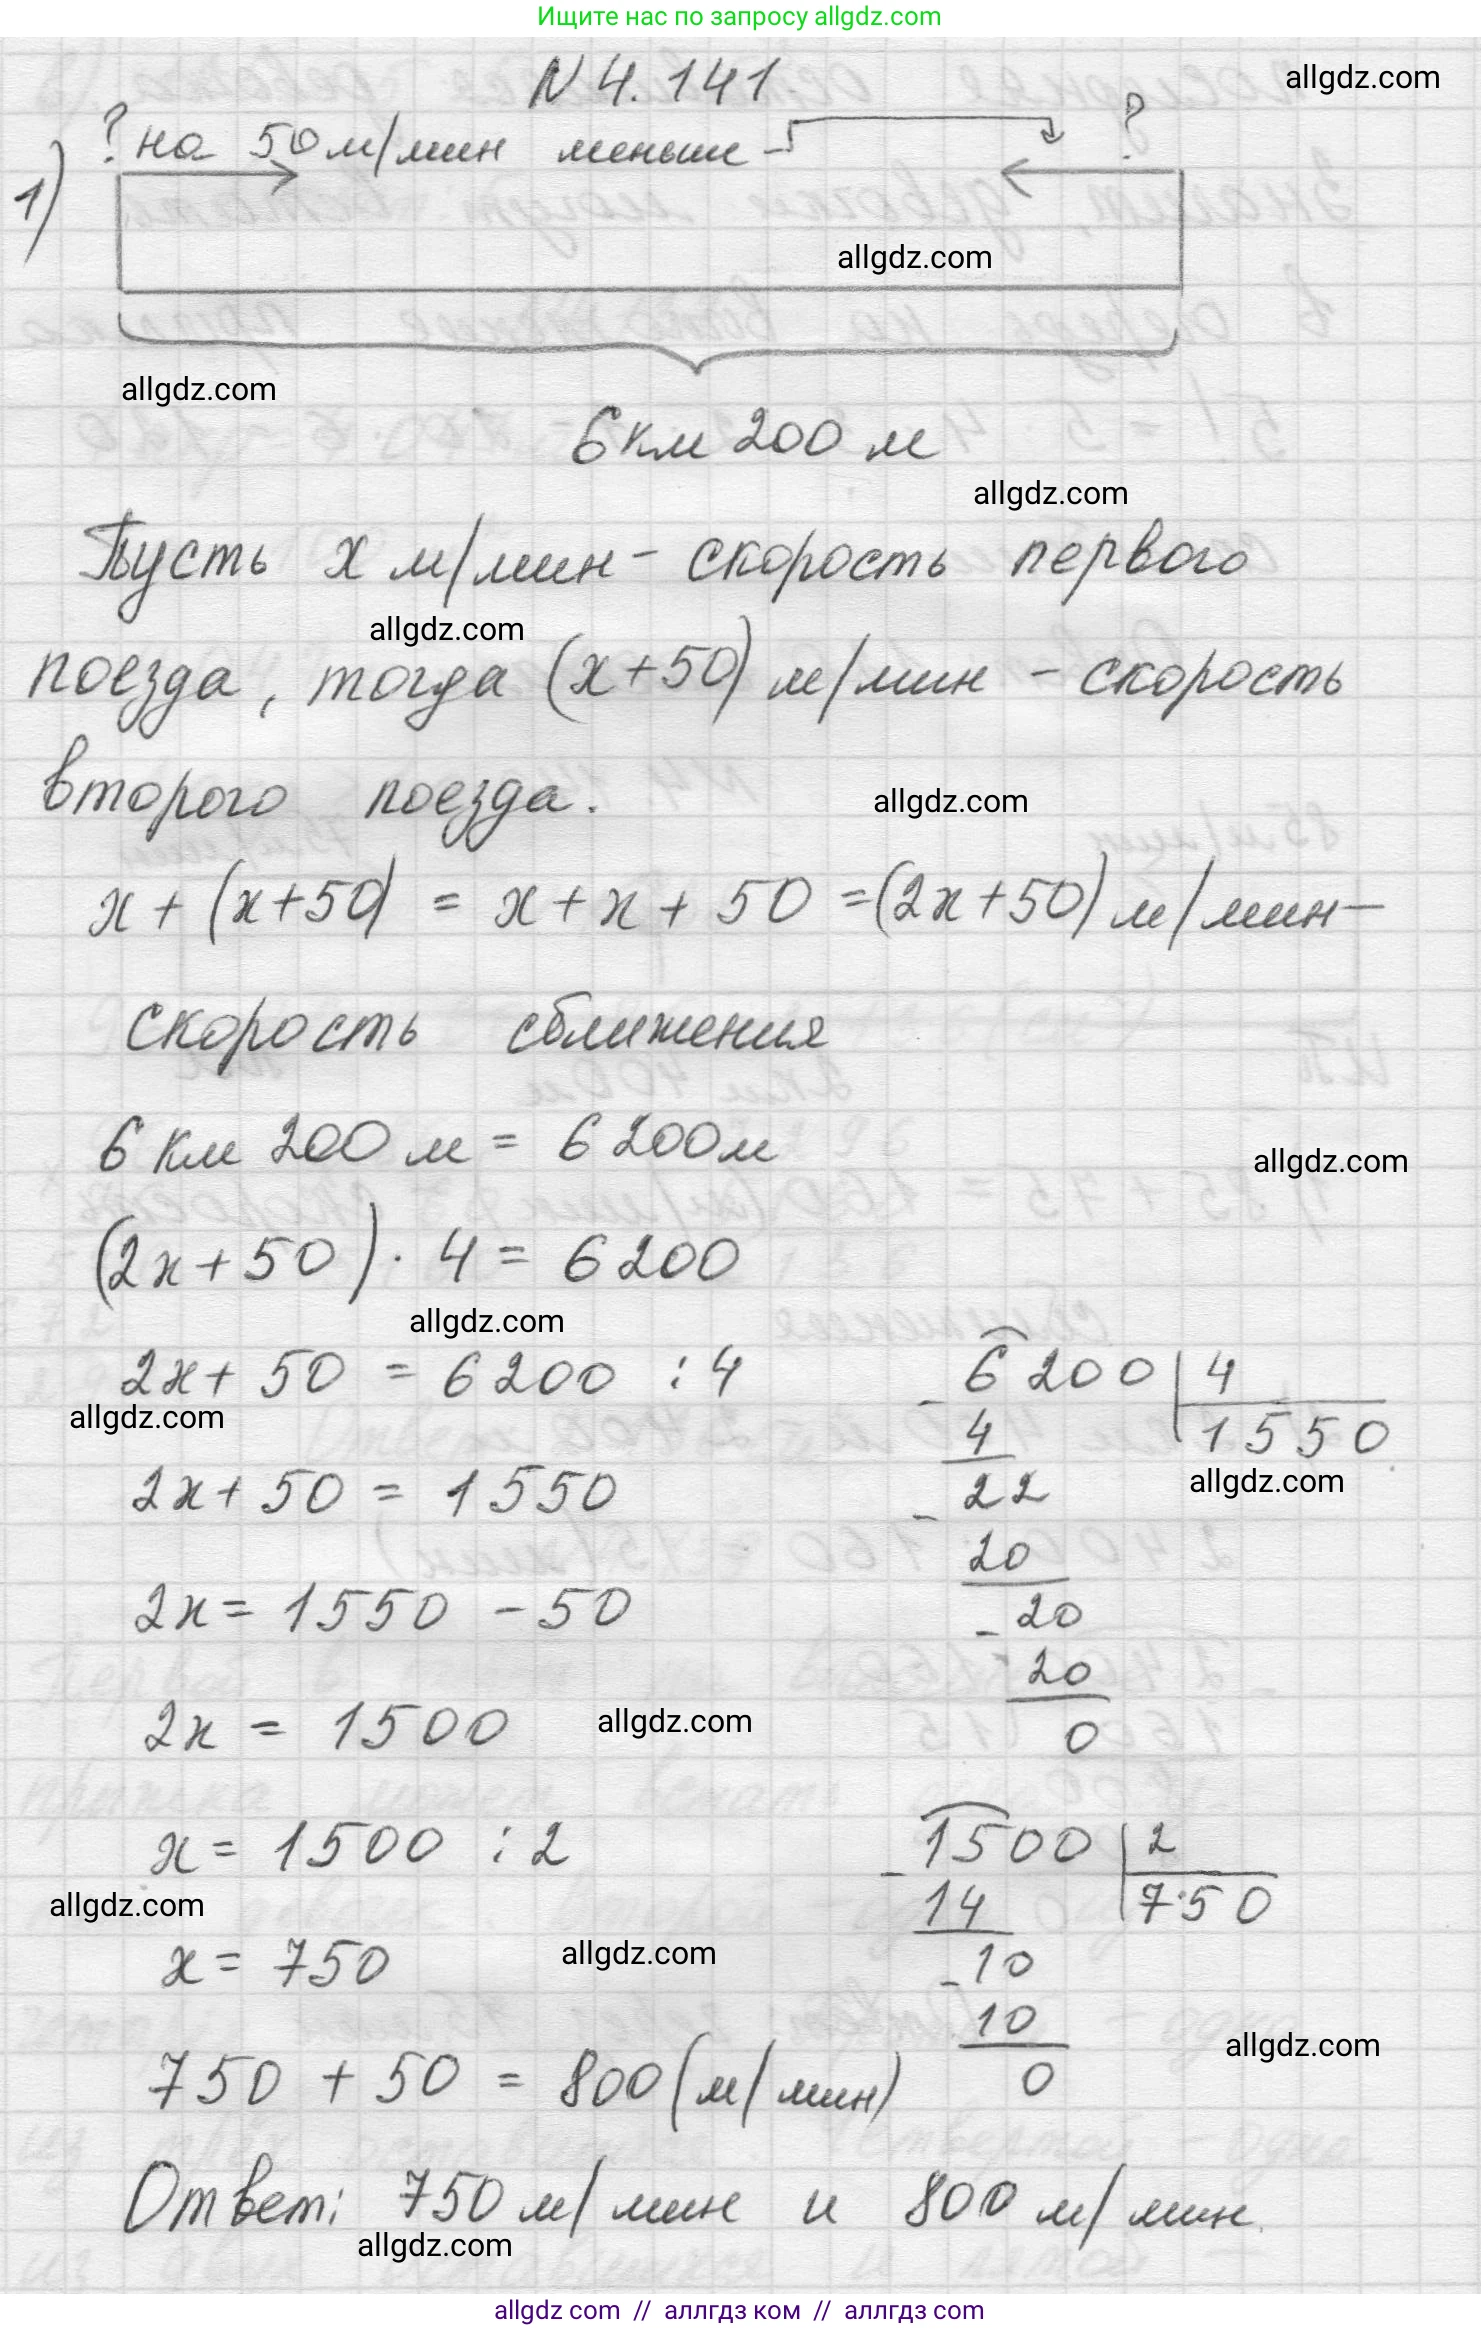 Ищите нас по запросу allgdz.com
N 4.141
allgdz.com
1) ? на 50 м/мин меньше ?
allgdz.com
allgdz.com
6 км 200 м
allgdz.com
Пусть x м/мин - скорость первого
allgdz.com
поезда, тогда (x+50) м/мин - скорость
второго поезда.
allgdz.com
x + (x+50) = x + x + 50 = (2x+50) м/мин -
скорость сближения
6 км 200 м = 6 200 м
allgdz.com
(2x+50) · 4 = 6 200
allgdz.com
2x + 50 = 6 200 : 4
6 200 | 4
allgdz.com
- 4
1 550
2x + 50 = 1 550
allgdz.com
22
- 20
2x = 1 550 - 50
20
- 20
2x = 1500
allgdz.com
0
x = 1500 : 2
1500 | 2
allgdz.com
- 14
750
x = 750
allgdz.com
10
- 10
allgdz.com
750 + 50 = 800 (м/мин)
0
Ответ: 750 м/мин и 800 м/мин.
allgdz.com
allgdz com // аллгдз ком // аллгдз com